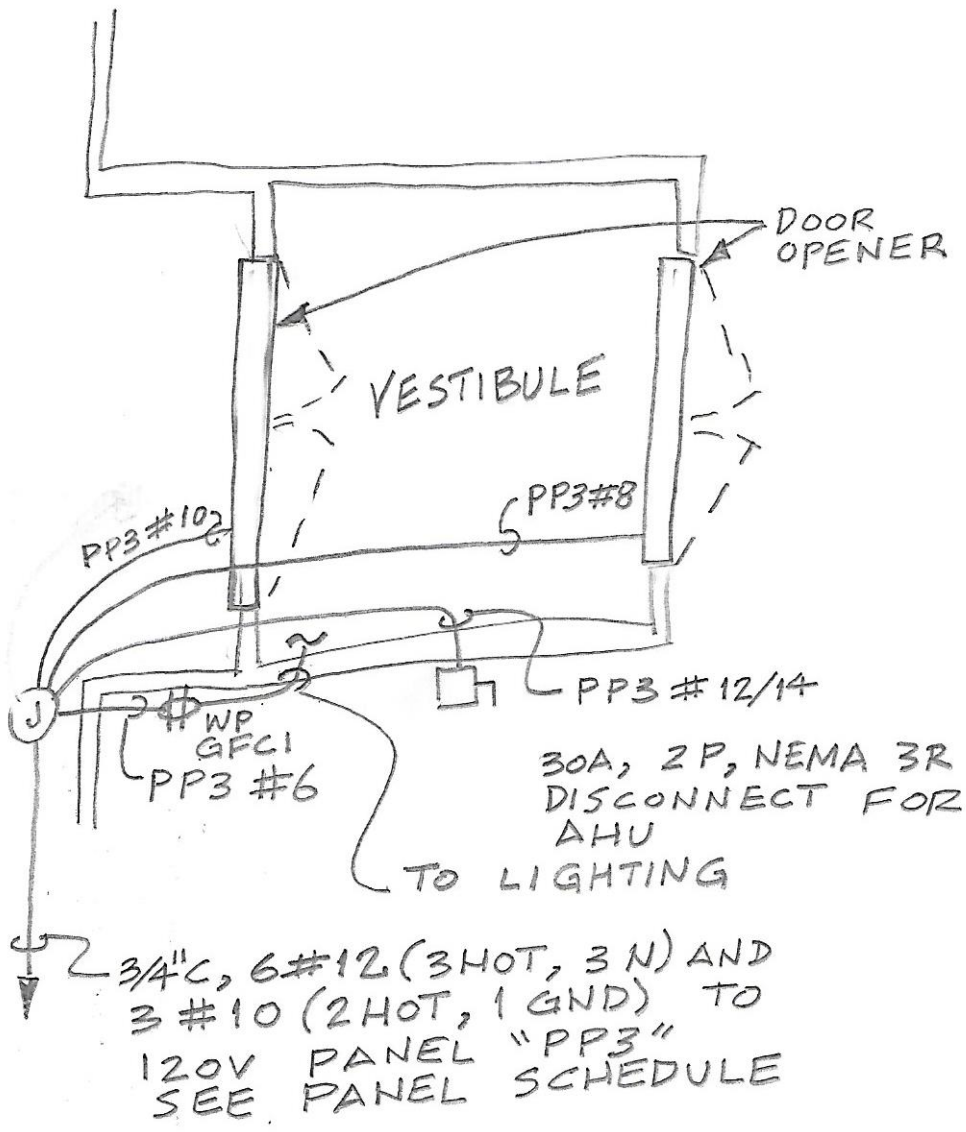 DOOR
OPENER
VESTIBULE
PP3#8
PP3 #10
J
WP
GFCI
PP3 #6
PP3 #12/14
30A, 2P, NEMA 3R
DISCONNECT FOR
AHU
TO LIGHTING
3/4"C, 6#12 (3HOT, 3N) AND
3 #10 (2HOT, 1 GND) TO
120V PANEL "PP3"
SEE PANEL SCHEDULE